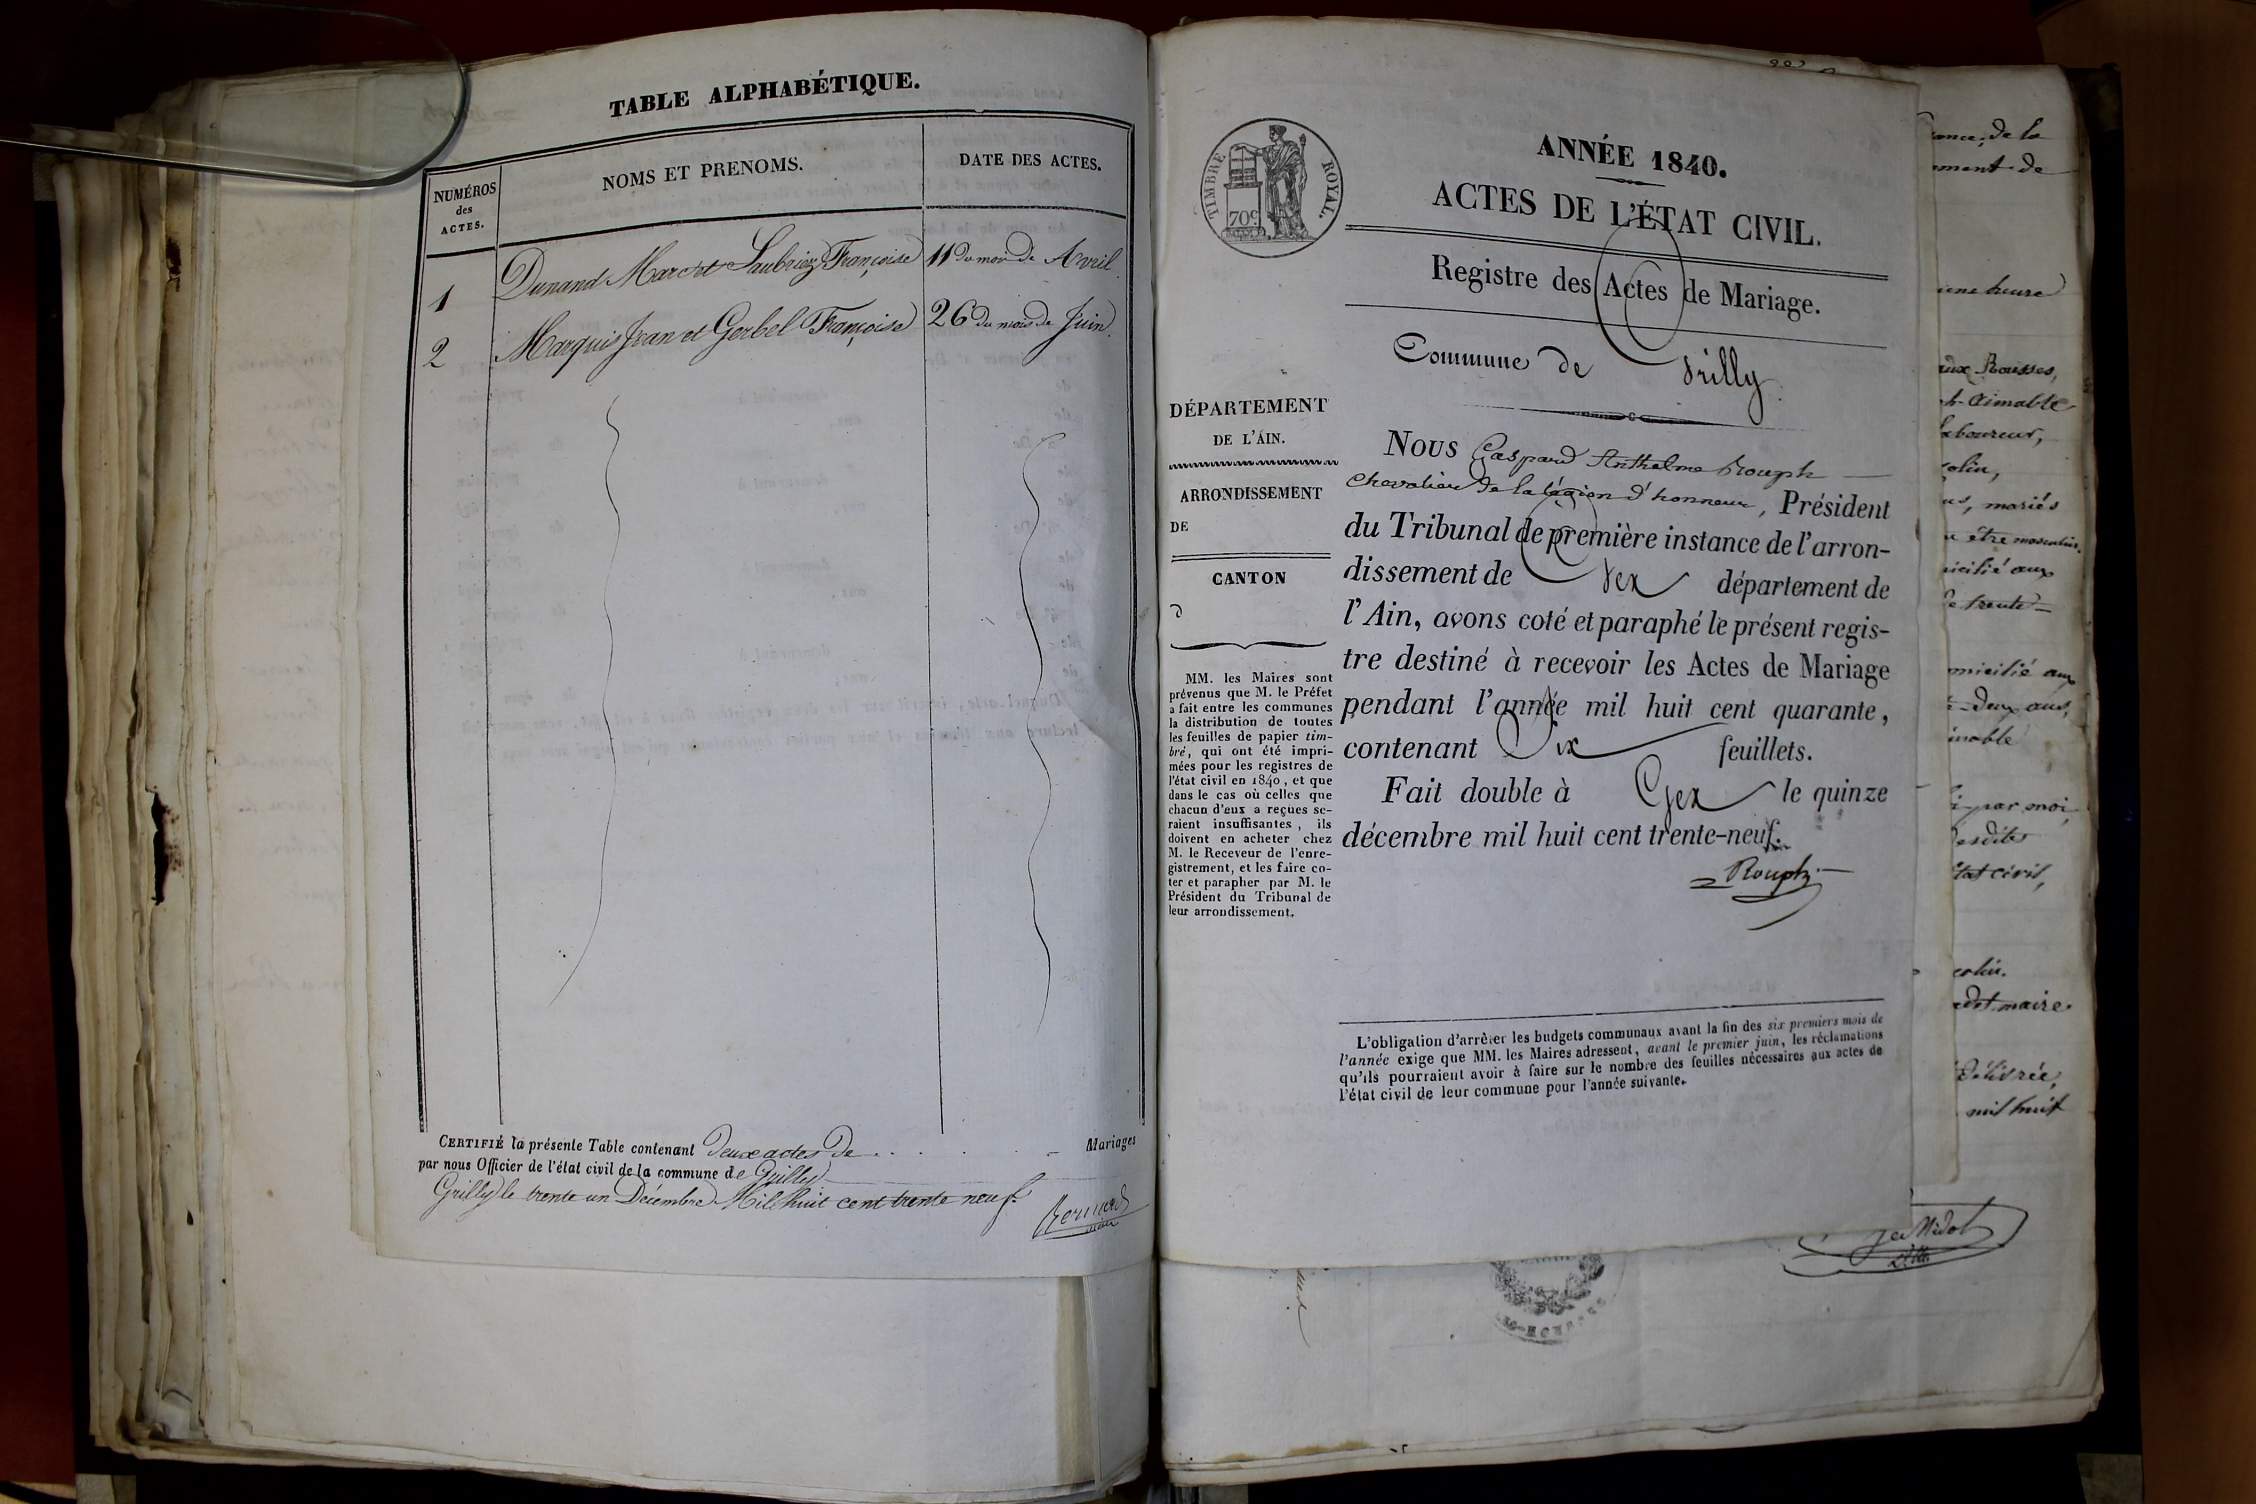 TABLE ALPHABÉTIQUE.
NUMÉROS
des
ACTES.
NOMS ET PRENOMS.
DATE DES ACTES.
1 Dunand Marc et Françoise 11 du mois de Avril.
2 Marquis Jean et Gerbel Françoise 26 du mois de Juin.
CERTIFIÉ la présente Table contenant deux actes de Mariages
par nous Officier de l'état civil de la commune de Grilly
Grilly le trente un Décembre Mil huit cent trente neuf.
maire
TIMBRE ROYAL.
70c
ANNÉE 1840.
ACTES DE L'ÉTAT CIVIL.
Registre des Actes de Mariage.
Commune de Grilly
DÉPARTEMENT
DE L'AIN.
ARRONDISSEMENT
DE
CANTON
D
MM. les Maires sont
prévenus que M. le Préfet
a fait entre les communes
la distribution de toutes
les feuilles de papier tim-
bré, qui ont été impri-
mées pour les registres de
l'état civil en 1840, et que
dans le cas où celles que
chacun d'eux a reçues se-
raient insuffisantes, ils
doivent en acheter chez
M. le Receveur de l'enre-
gistrement, et les faire co-
ter et parapher par M. le
Président du Tribunal de
leur arrondissement.
Nous Gaspard Anthelme Rouph
chevalier de la légion d'honneur, Président
du Tribunal de première instance de l'arron-
dissement de Gex département de
l'Ain, avons coté et paraphé le présent regis-
tre destiné à recevoir les Actes de Mariage
pendant l'année mil huit cent quarante,
contenant Six feuillets.
Fait double à Gex le quinze
décembre mil huit cent trente-neuf.
Rouph
L'obligation d'arrêter les budgets communaux avant la fin des six premiers mois de
l'année exige que MM. les Maires adressent, avant le premier juin, les réclamations
qu'ils pourraient avoir à faire sur le nombre des feuilles nécessaires aux actes de
l'état civil de leur commune pour l'année suivante.
de la
de
heure
aux Rousses,
Aimable
laboureur,
mariés
être
aux
trente-
domicilié aux
deux ans,
par moi
desdites
état civil,
maire.
délivrée,
mil huit